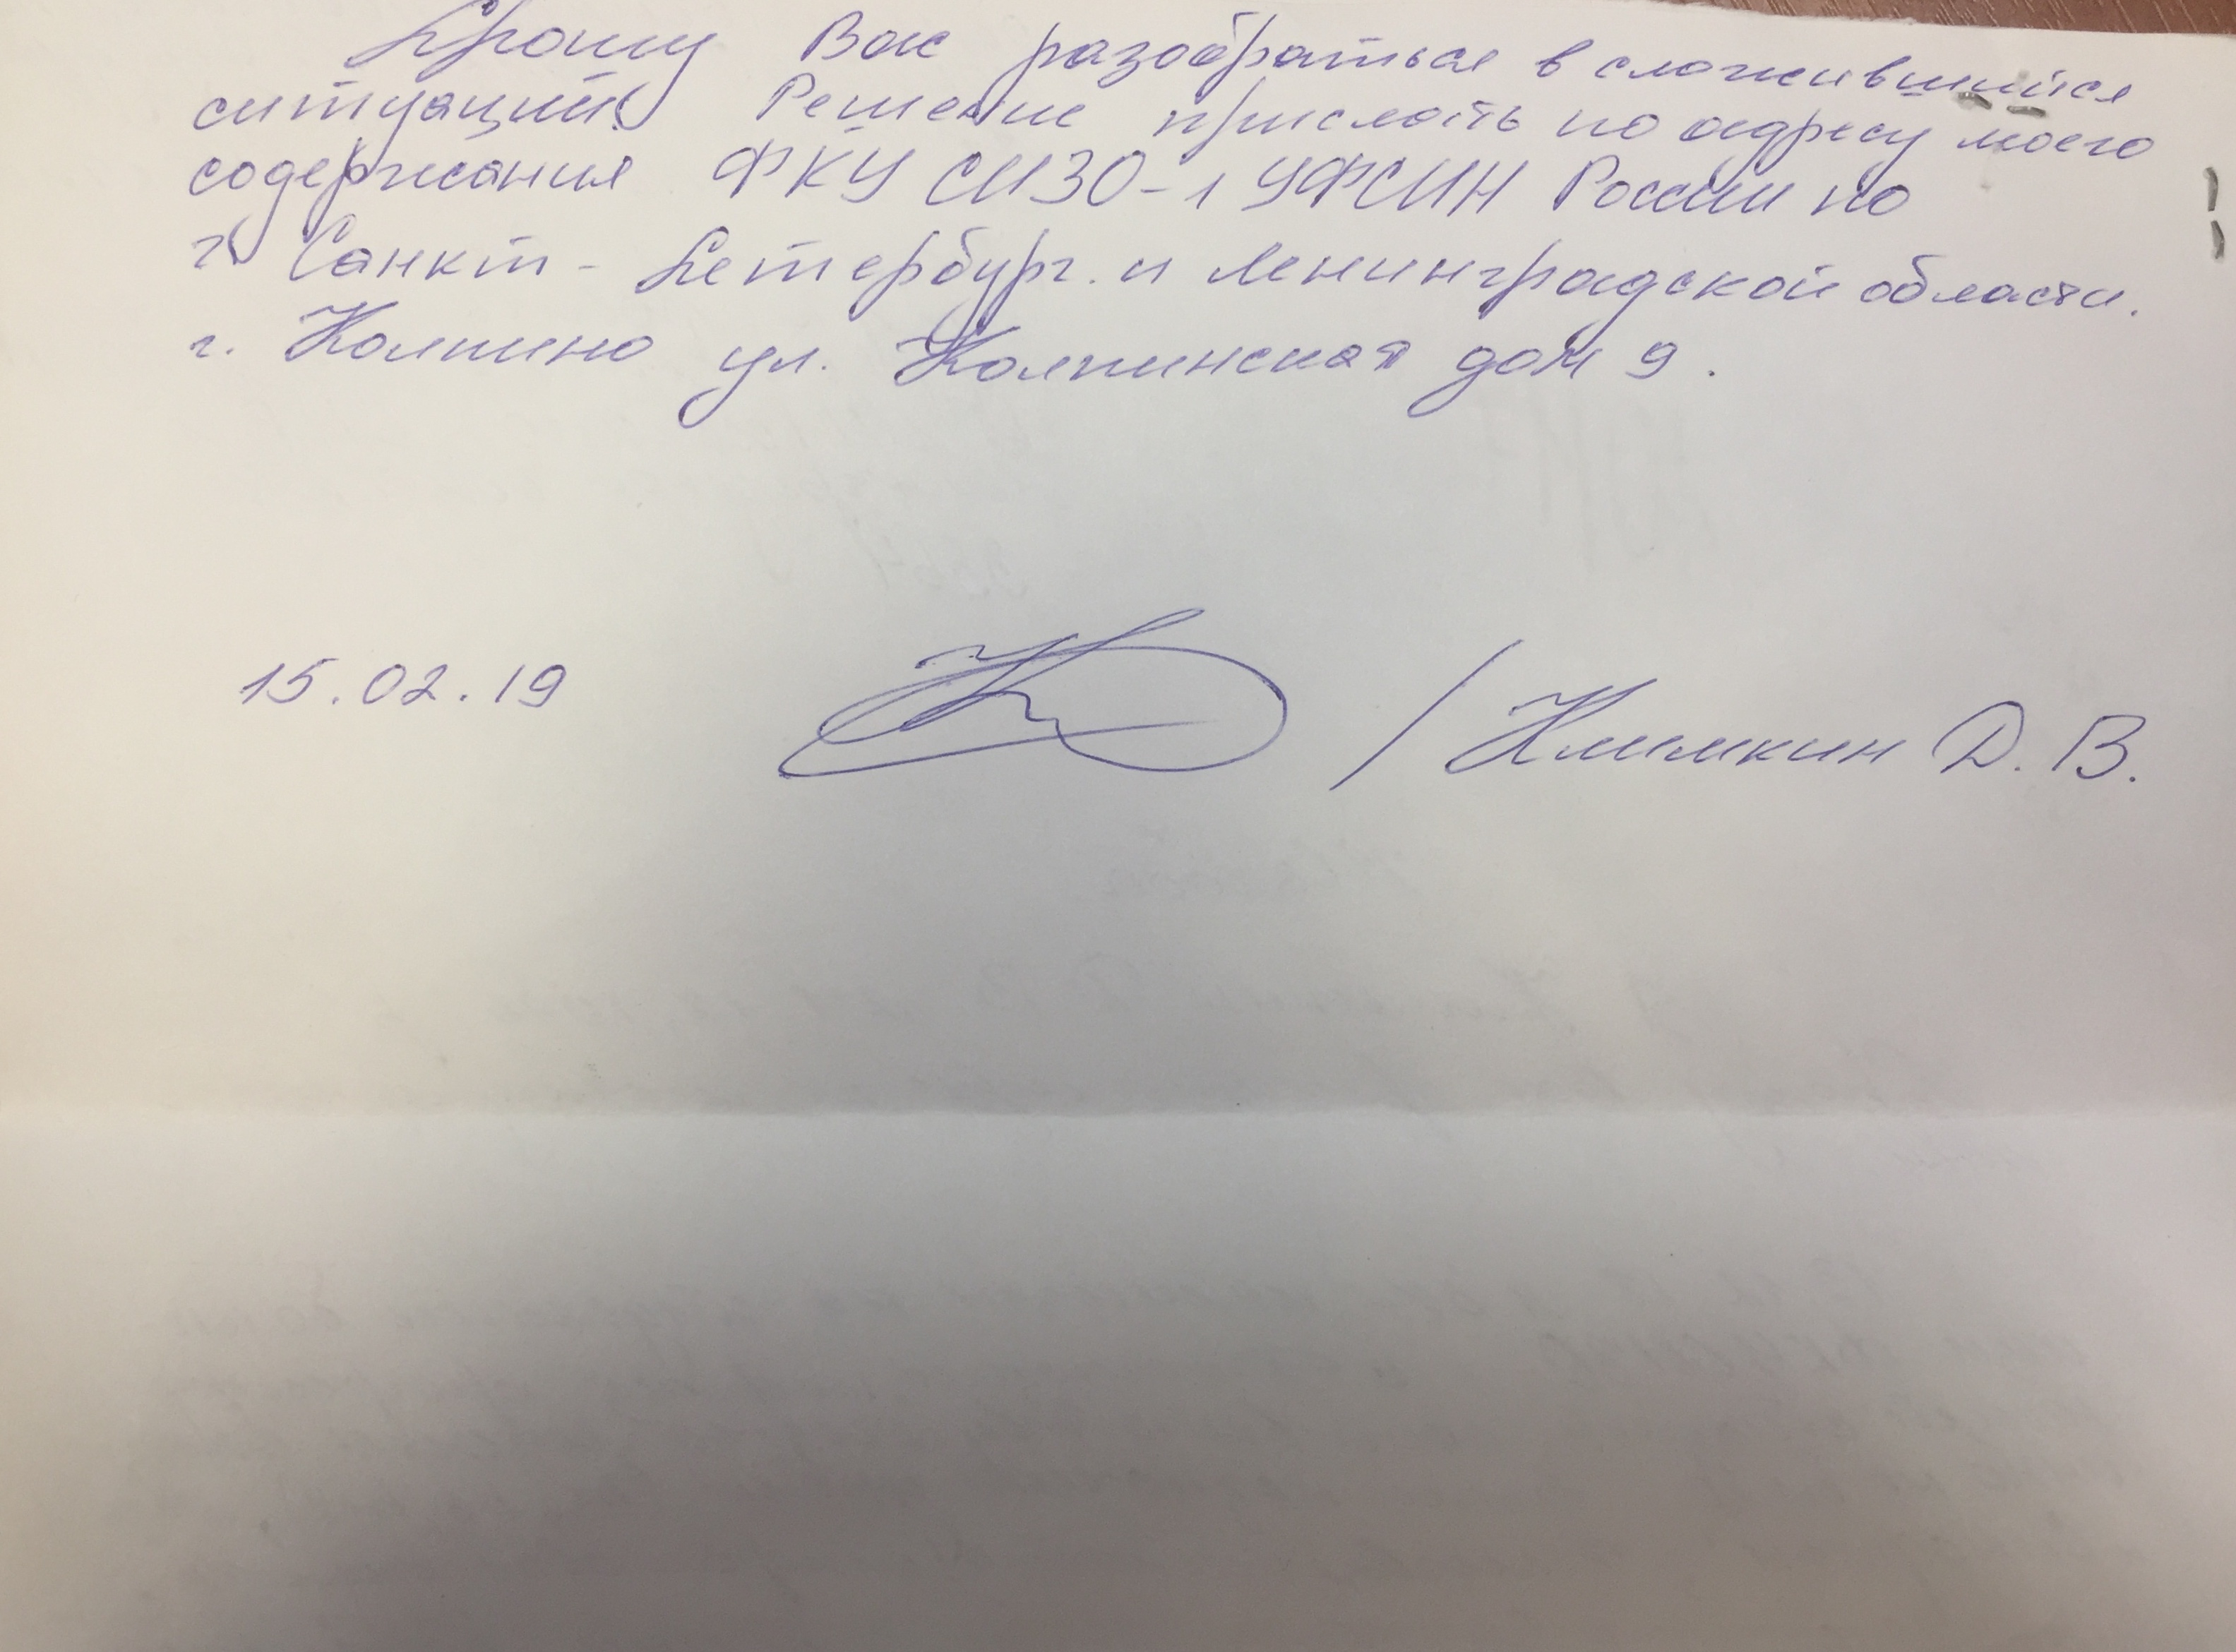 Прошу Вас разобраться в сложившийся
ситуации. Решение прислать по адресу моего
содержания ФКУ СИЗО-1 УФСИН России по
г. Санкт-Петербург. и Ленинградской области.
г. Колпино ул. Колпинская дом 9.
15.02.19 / Климкин Д. В.